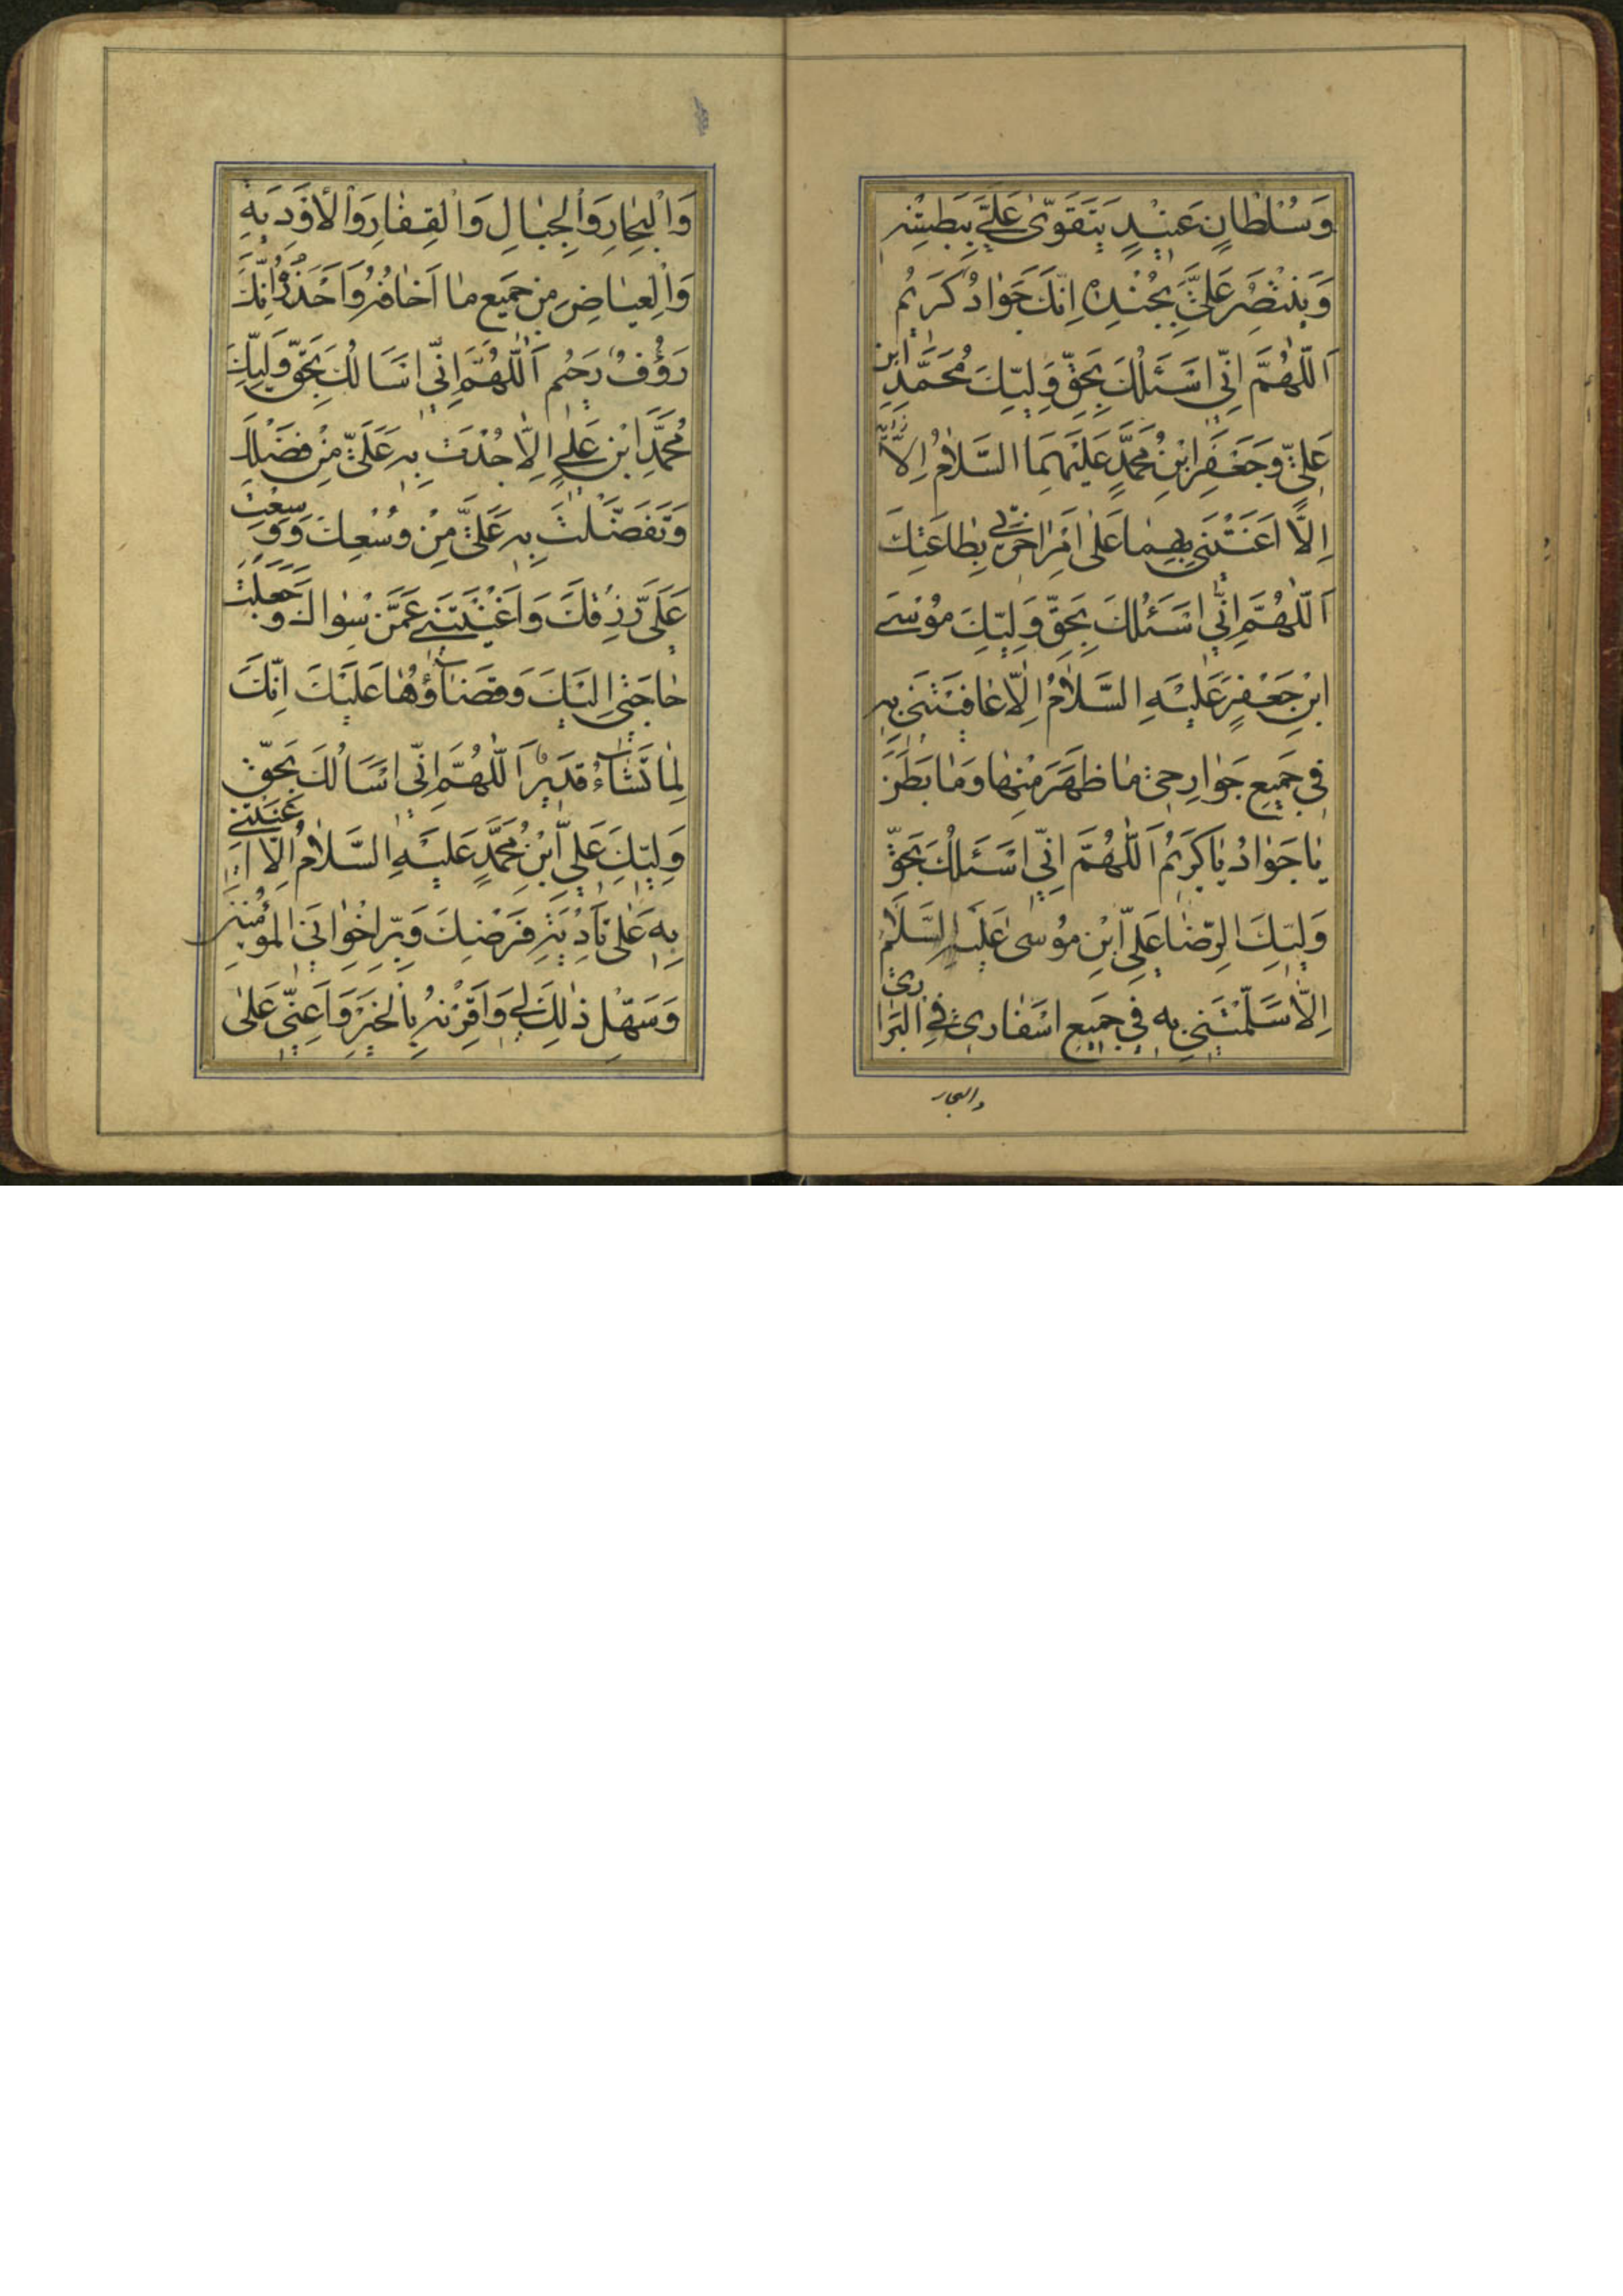 وَسُلْطَانٍ عَنِيدٍ يَتَقَوّىٰ عَلَيَّ بِبَطْشِهِ
وَيَنْتَصِرُ عَلَيَّ بِجُنْدِهِ اِنَّكَ جَوَادٌ كَرِيمٌ
اَللّٰهُمَّ اِنّي اَسْئَلُكَ بِحَقِّ وَلِيِّكَ مُحَمَّدِ ابْنِ
عَلِيٍّ وَجَعْفَرِ ابْنِ مُحَمَّدٍ عَلَيْهِمَا السَّلاٰمُ اِلاَّ
اِلاَّ اَعَنْتَنِي بِهِمَا عَلىٰ اَمْرِ اخِرَتي بِطَاعَتِكَ
اَللّٰهُمَّ اِنّي اَسْئَلُكَ بِحَقِّ وَلِيِّكَ مُوْسَى
ابْنِ جَعْفَرٍ عَلَيْهِ السَّلاٰمُ اِلاّٰ عَافَيْتَنِي بِهِ
فِي جَمِيعِ جَوَارِحِي مَا ظَهَرَ مِنْهَا وَمَا بَطَنَ
يَا جَوَادُ يَا كَرِيمُ اَللّٰهُمَّ اِنّي اَسْئَلُكَ بِحَقِّ
وَلِيِّكَ الرِّضَا عَلِيِّ ابْنِ مُوسىٰ عَلَيْهِ السَّلاَمُ
اِلاّٰ سَلَّمْتَنِي بِهِ فِي جَمِيعِ اَسْفَارِي فِي الْبَرَارِي
والبحار
وَالْبِحَارِ وَالْجِبَالِ وَالْقِفَارِ وَالْاَوْدِيَةِ
وَالْغِيَاضِ مِنْ جَمِيعِ مَا اَخَافُهُ وَاَحْذَرُهُ اِنَّكَ
رَؤُفٌ رَحِيمٌ اَللّٰهُمَّ اِنّي اَسَالُكَ بِحَقِّ وَلِيِّكَ
مُحَمَّدِ ابْنِ عَلِيٍّ اِلاّٰ جُدْتَ بِهِ عَلَيَّ مِنْ فَضْلِكَ
وَتَفَضَّلْتَ بِهِ عَلَيَّ مِنْ وُسْعِكَ وَوَسَّعْتَ
عَلَيَّ رِزْقَكَ وَاَغْنَيْتَنِي عَمَّنْ سِوَاكَ وَجَعَلْتَ
حَاجَتِي اِلَيْكَ وَقَضَاؤُهَا عَلَيْكَ اِنَّكَ
لِمَا تَشَاءُ قَدِيرٌ اَللّٰهُمَّ اِنّي اَسْاَلُكَ بِحَقِّ
وَلِيِّكَ عَلِيِّ ابْنِ مُحَمَّدٍ عَلَيْهِ السَّلاٰمُ اِلاّٰ اَعَنْتَنِي
بِهِ عَلىٰ تَأدِيَةِ فَرْضِكَ وَبِرِّ اِخْوَانِيَ الْمُؤمِنِينَ
وَسَهِّلْ ذٰلِكَ لِي وَاقْرُنْهُ بِالْخَيْرِ وَاَعِنّي عَلىٰ